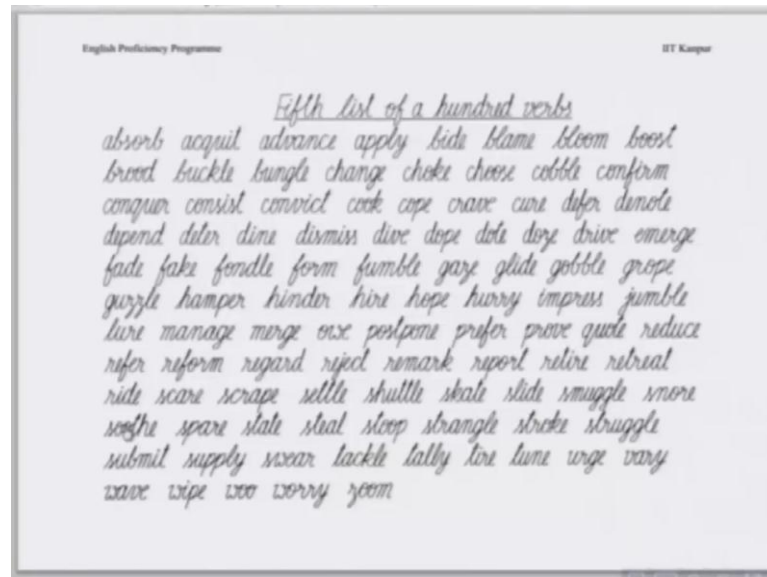 English Proficiency Programme IIT Kanpur
Fifth list of a hundred verbs
absorb acquit advance apply bide blame bloom boost
brood buckle bungle change choke choose cobble confirm
conquer consist convict cook cope crave cure defer denote
depend deter dine dismiss dive dope dote doze drive emerge
fade fake fondle form fumble gaze glide gobble grope
guzzle hamper hinder hire hope hurry impress jumble
lure manage merge owe postpone prefer prove quote reduce
refer reform regard reject remark report retire retreat
ride scare scrape settle shuttle skate slide smuggle snore
soothe spare state steal stoop strangle stroke struggle
submit supply swear tackle tally tire tune urge vary
wave wipe woo worry zoom